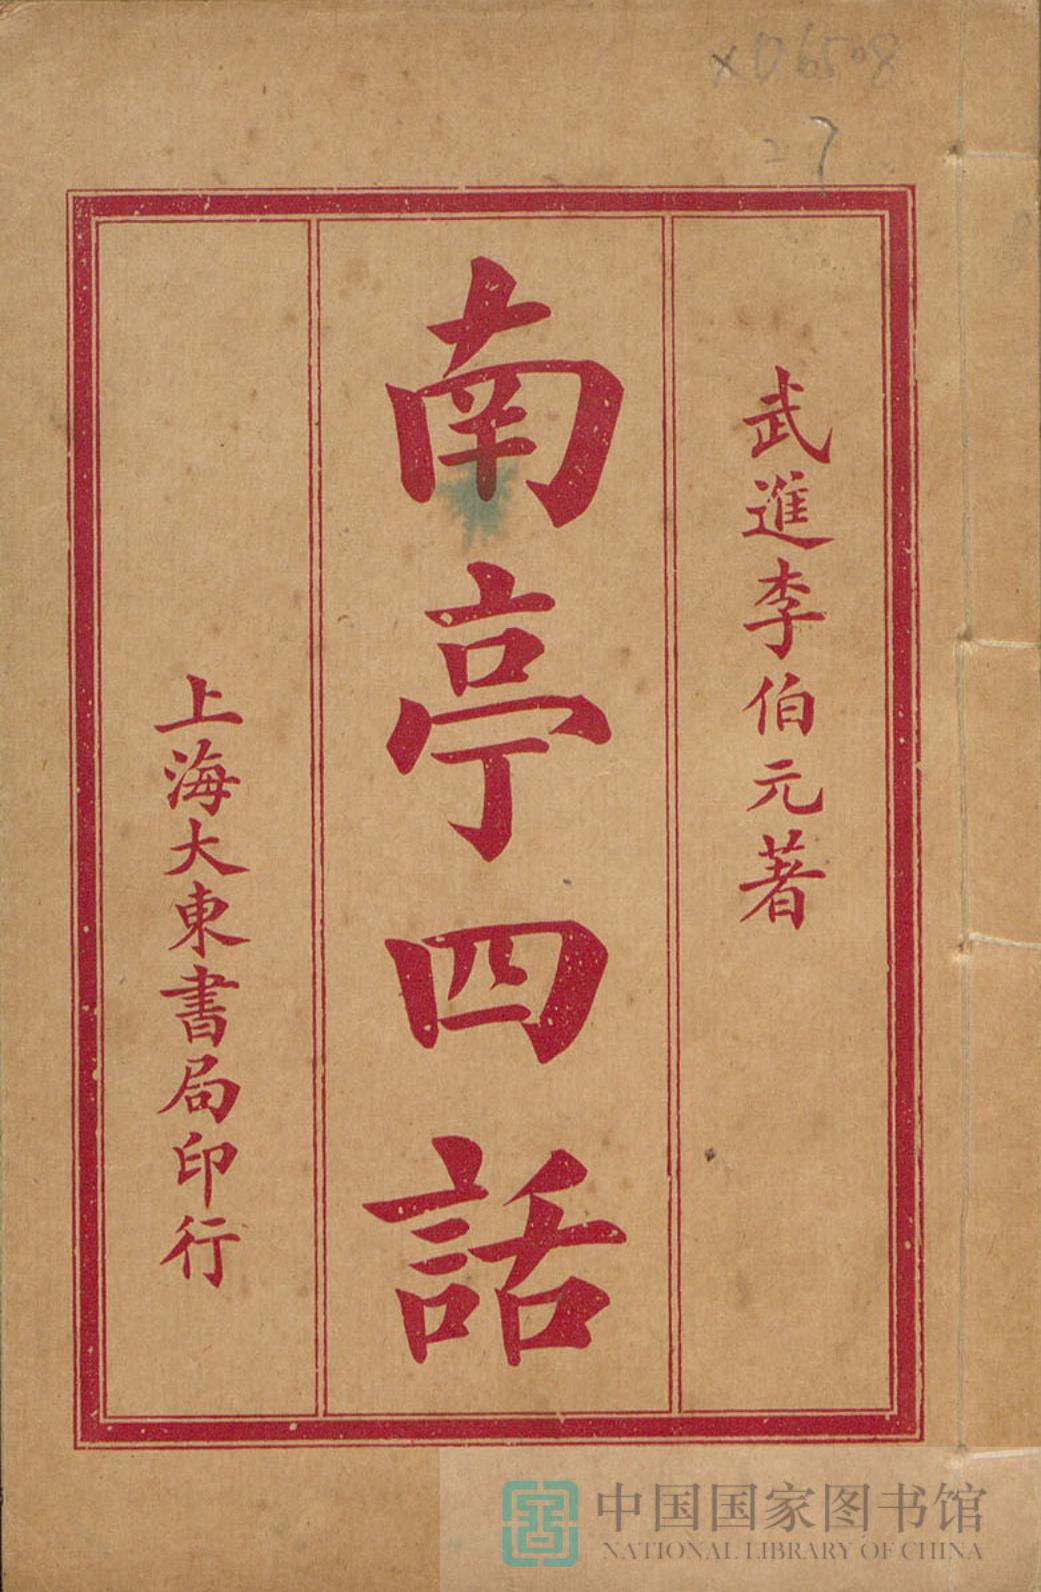 xD6508
27
武進李伯元著
南亭四話
上海大東書局印行
中国国家图书馆
NATIONAL LIBRARY OF CHINA